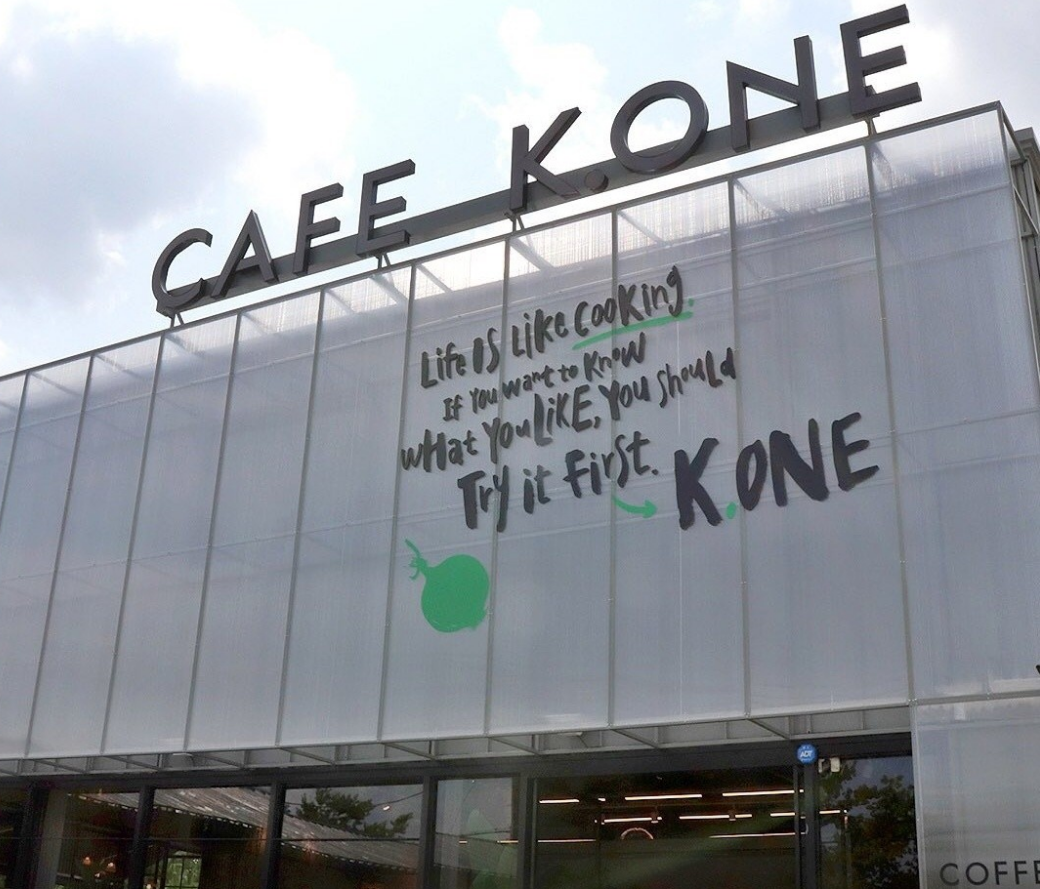 CAFE K.ONE
Life IS Like cooking.
If You want to Know
wHat You LiKE, You should
Try it first.
K.ONE
ADT
COFFE